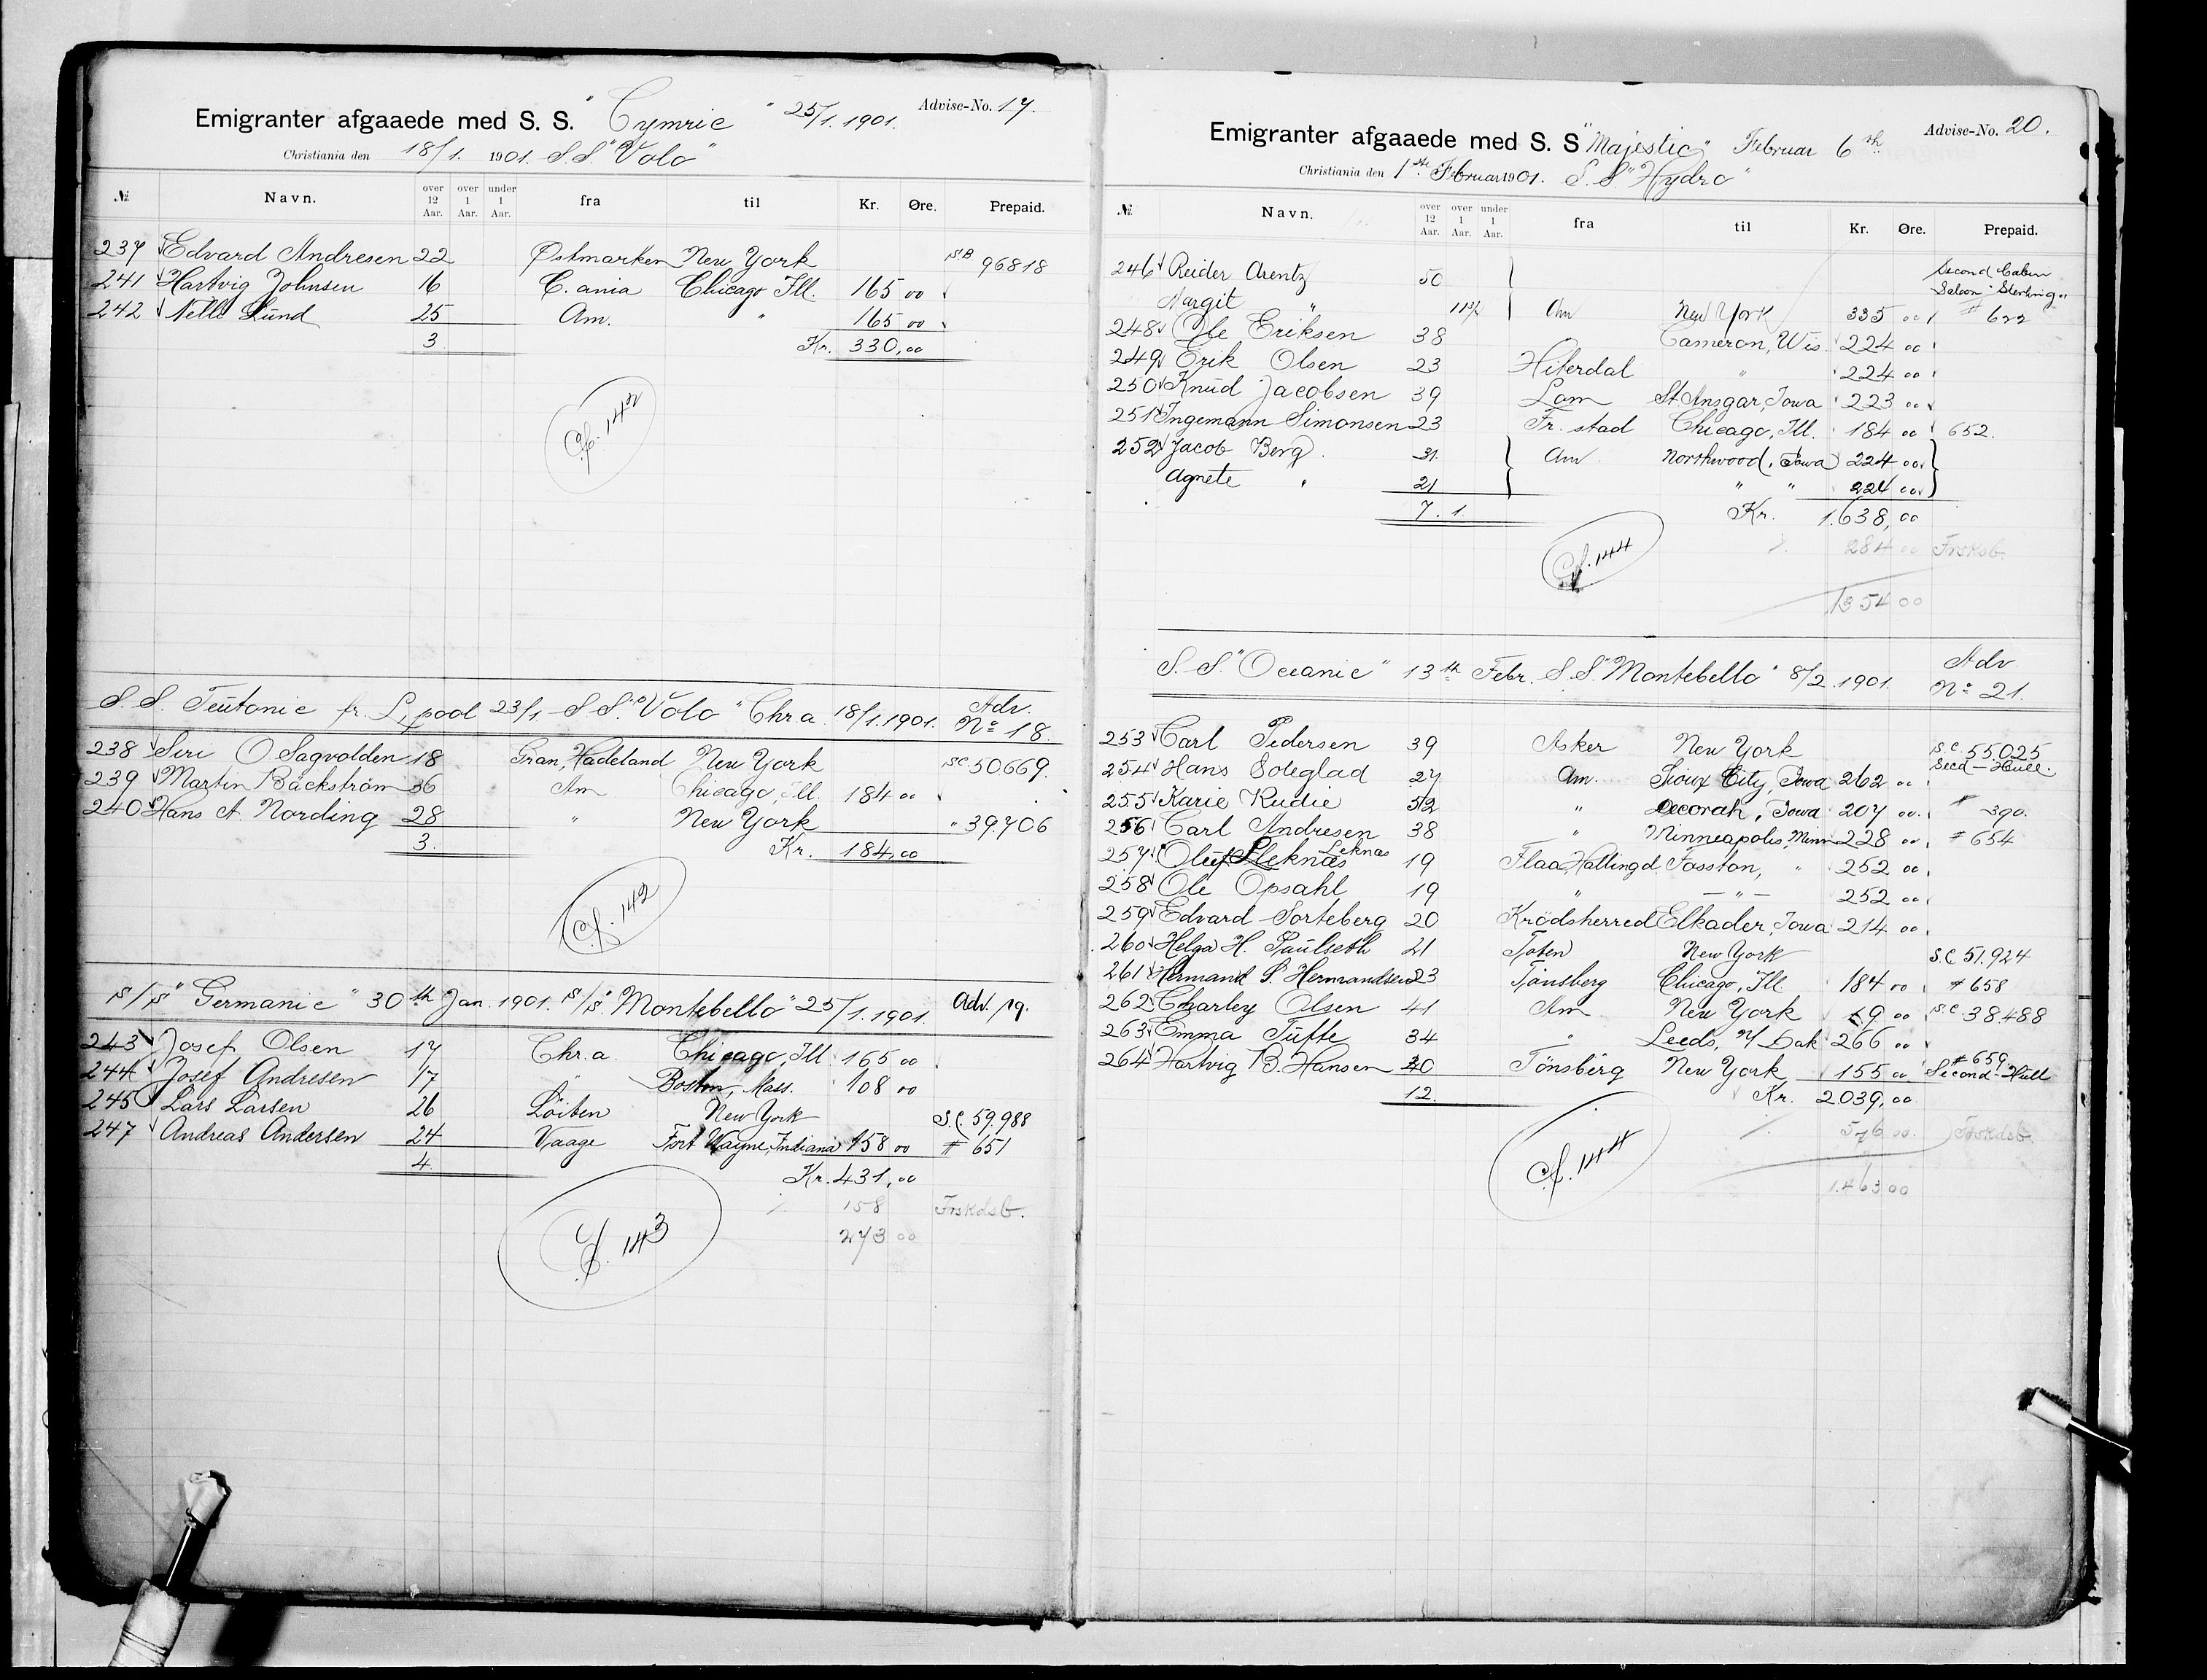 Emigranter afgaaede med S. S. "Cymric" 25/1. 1901. Advise-No. 17.
Christiania den 18/1. 1901. S.S. "Volo"
№ Navn. over 12 Aar. over 1 Aar. under 1 Aar. fra til Kr. Øre. Prepaid.
237 Edvard Andresen 22 Østmarken New York S.B 96818
241 Hartvig Johnsen 16 C.ania Chicago Ill. 165 00
242 Nelle Lund 25 Am. " 165 00
3 Kr. 330,00
Cf. 142
S. S. Teutonic fr. L,pool 23/1 S S. "Volo" Chr.a 18/1. 1901. Adv. No 18.
238 Siri O Sagvolden 18 Gran, Hadeland New York S.C. 50669.
239 Martin Bäckström 36 Am Chicago, Ill. 184 00
240 Hans A. Nording 28 " New York " 39706
3. Kr. 184,00
Cf. 142
S/S "Germanic" 30th Jan. 1901. S/S. "Montebello" 25/1. 1901. Adv. 19.
243 Josef Olsen 17 Chr.a. Chicago, Ill 165 00
244 Josef Andresen 17 " Boston, Mass. 108 00
245 Lars Larsen 26 Löiten New York S.C. 59.988
247 Andreas Andersen 24 Vaage Fort Wayne, Indiana 158 00 # 651
4 Kr. 431,00
158 Frskdsb.
273 00
Cf. 143
Emigranter afgaaede med S. S "Majestic" Februar 6th Advise-No. 20.
Christiania den 1st Februar 1901. S. S "Hydro"
№ Navn. over 12 Aar. over 1 Aar. under 1 Aar. fra til Kr. Øre. Prepaid.
246 Reider Arentz 50 Second Cabin Saloon "Sterling"
Margit " 11 1/2 Am New York 335 00 # 622
248 Ole Eriksen 38 Cameron, Wis. 224 00
249 Erik Olsen 23 Hiterdal " 224 00
250 Knud Jacobsen 39 Lom St Ansgar, Iowa 223 00
251 Ingemann Simonsen 23 Fr. stad Chicago, Ill. 184 00 652.
252 Jacob Berg. 31 Am Northwood, Iowa 224 00
Agnete " 21 " " 224 00
7. 1. Kr. 1.638,00
284 00 Frskdsb.
1354 00
Cf. 144
S. S. "Oceanic" 13th Febr. S. S. "Montebello" 8/2 1901. Adv. No 21.
253 Carl Pedersen 39 Asker New York S.C. 55.025
254 Hans Soleglad 27 Am. Sioux City, Iowa 262 00 Secd - Hull.
255 Karie Rudie 52 " Decorah, Iowa 207 00 # 390.
256 Carl Andresen 38 " Minneapolis, Minn 228 00 # 654
257 Oluf Leknæs 19 Flaa, Hallingd. Fosston, " 252 00
Leknas
258 Ole Opsahl 19 " — " — 252 00
259 Edvard Sorteberg 20 Krödsherred Elkader, Iowa 214 00
260 Helga H. Paulseth 21 Toten New York S.C. 51.924
261 Hermand S. Hermandsen 23 Tönsberg Chicago, Ill. 184 00 # 658
262 Charley Olsen 41 Am New York 19 00 S.C. 38.488
263 Emma Tufte 34 " Leeds, N/Dak 266 00
264 Hartvig B. Hansen 40 Tönsberg New York 155 00 # 659 Second-Hull
12. Kr. 2039,00
576 00. Frskdsb.
1.463 00
Cf. 144